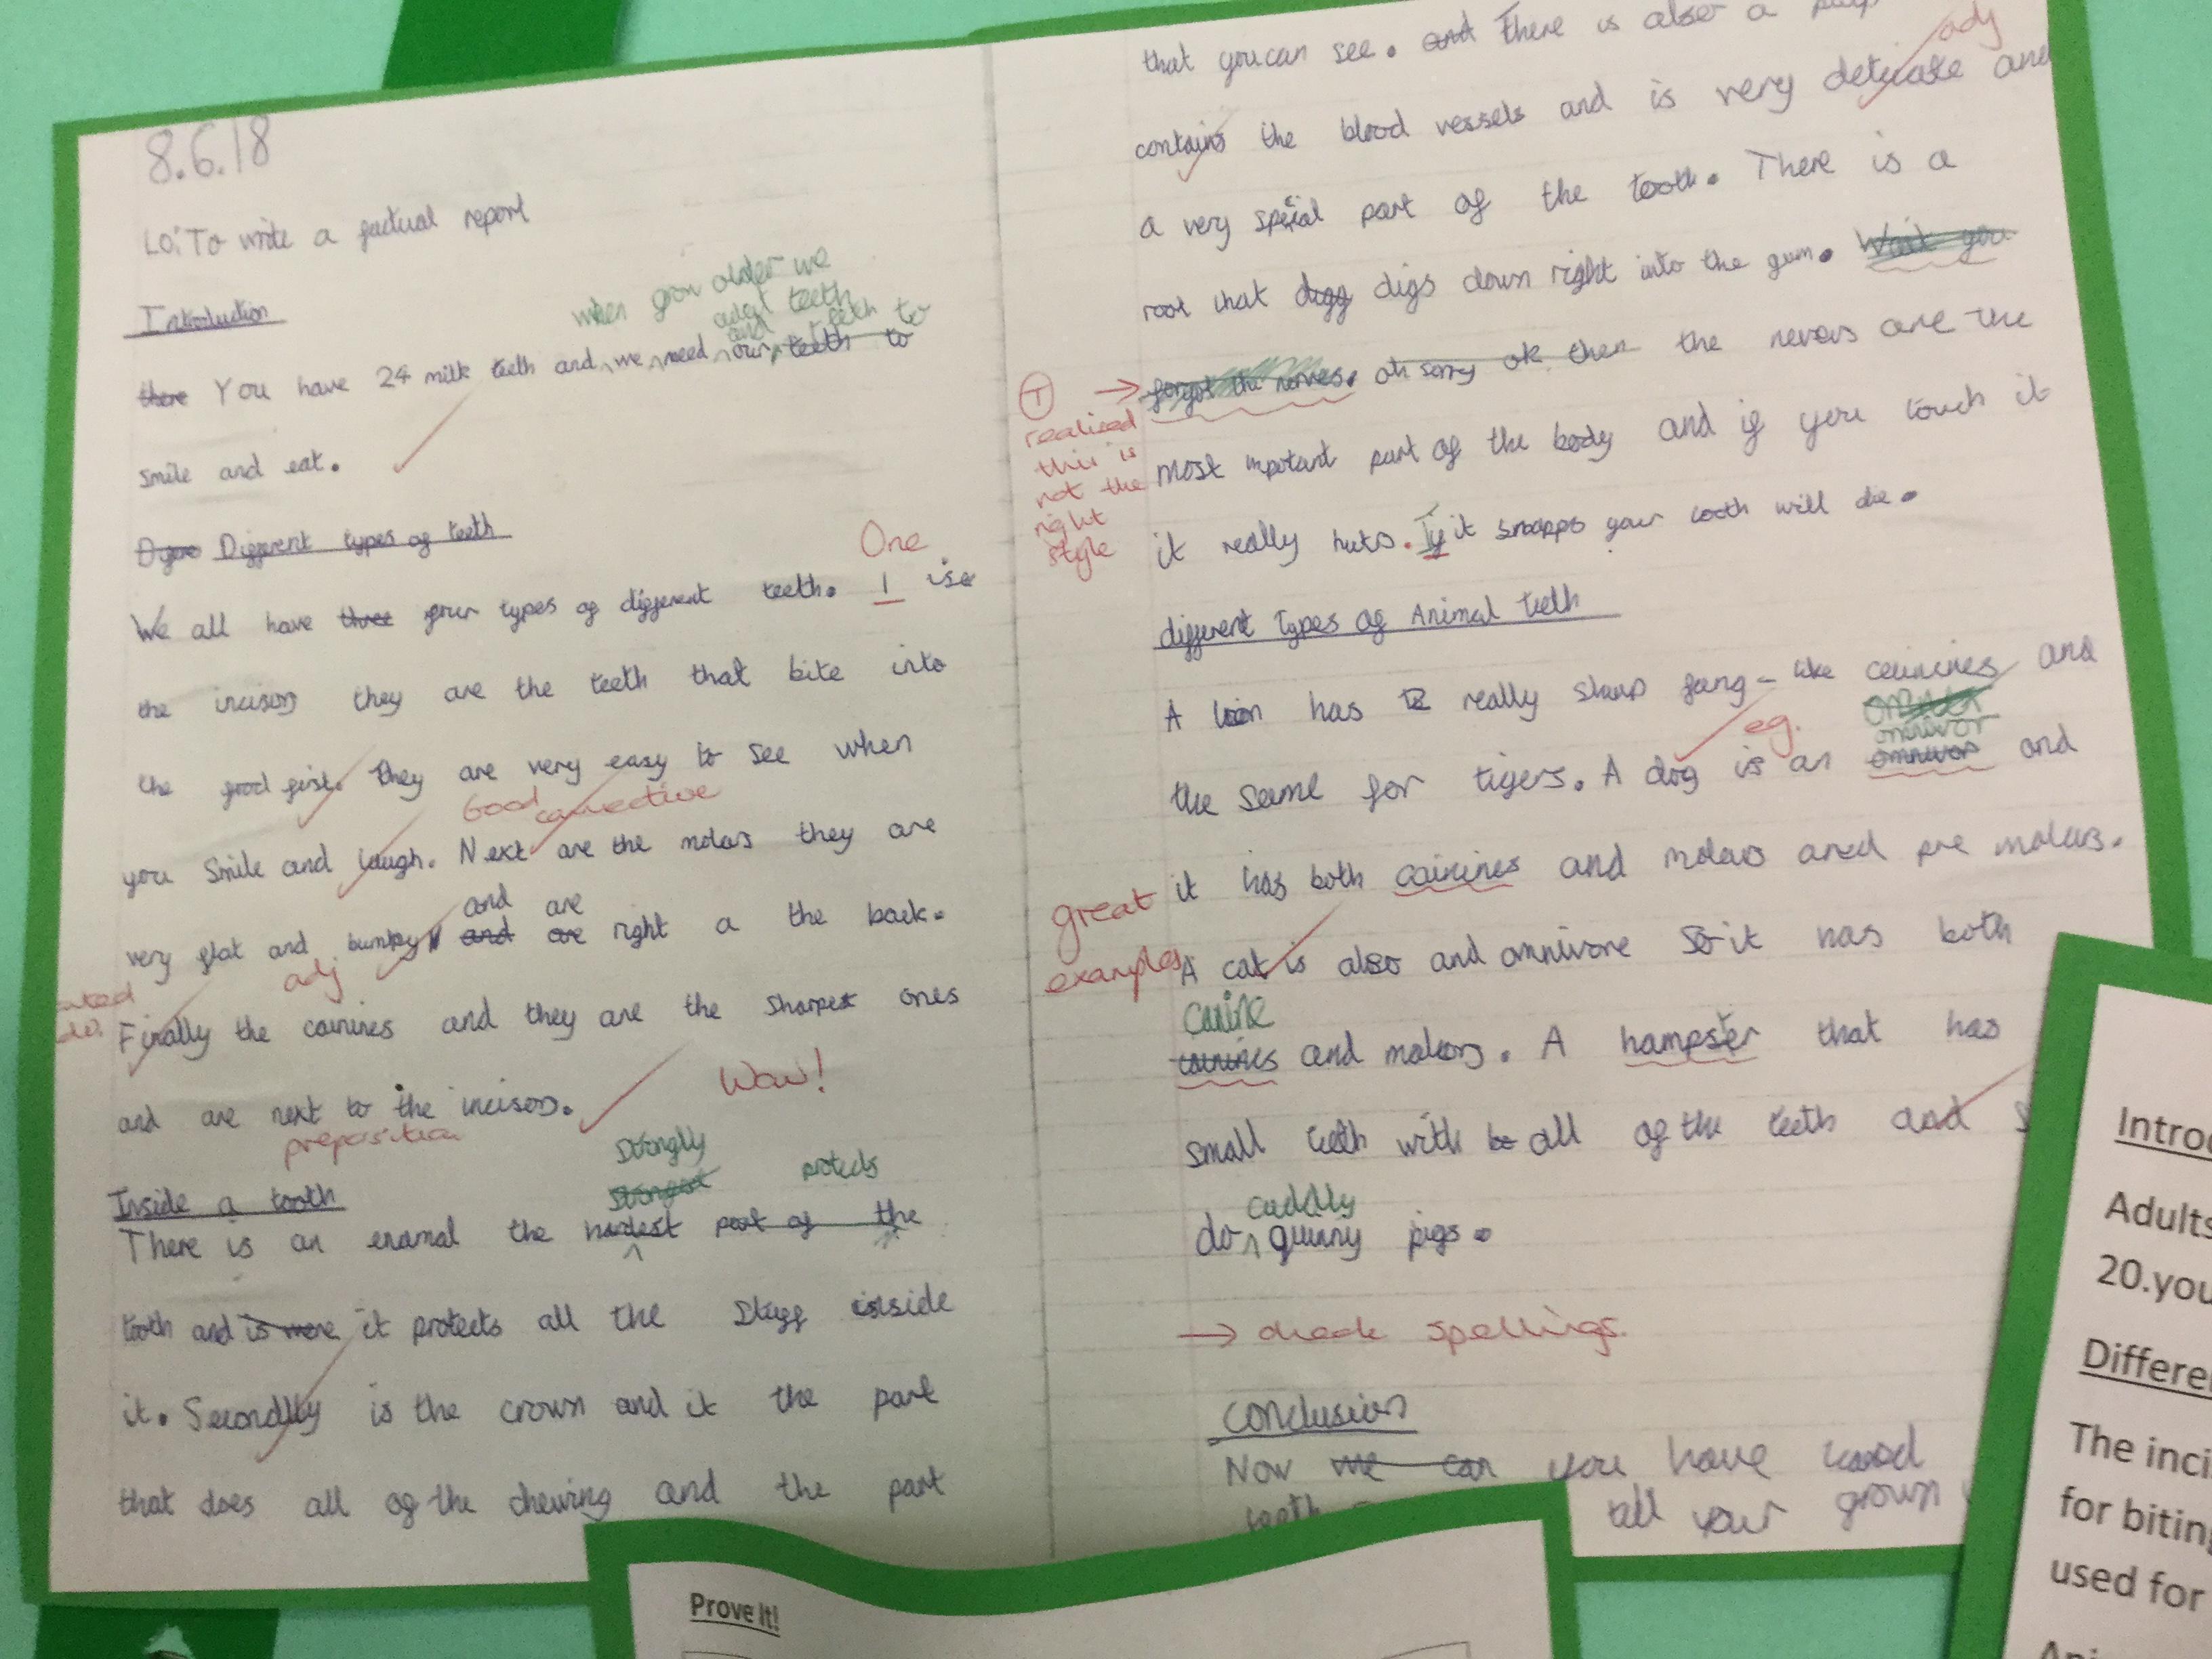 8.6.18
LO: To write a factual report
Introduction
when grow older we
adat teeth
and teeth to
there You have 24 milk teeth and we need our teeth to
smile and eat.
Different types of teeth
One
We all have three four types of different teeth. 1 is
the incisors they are the teeth that bite into
the food first. They are very easy to see when
Good connective
you Smile and laugh. Next are the molars they are
and are
very flat and bumpy and are right a the back.
adj
Finally the cainines and they are the sharpest ones
Wow!
and are next to the incisors.
preposition
strongly protects
strongest
Inside a tooth
There is an enamal the hardest part of the
tooth and is more it protects all the stuff inside
it. Secondly is the crown and it the part
that does all of the chewing and the part
that you can see. and There is also a
adj
contains the blood vessels and is very delicate and
a very special part of the tooth. There is a
root that digg digs down right into the gum. Wait you
forgot the nerves. oh sorry ok then the nervos are the
T → realised this is not the right style
most inpotant part of the body and if you touch it
it really huts. If it snapps your tooth will die.
different Types of Animal teeth
A lion has really sharp fang-like cainines and
eg.
omnivor
the same for tigers. A dog is an omnivor and
it has both cainines and molars and pre molars.
great examples
A cat is also and omnivore so it has both
canine
cainines and molars. A hampster that has
small teeth with all of the teeth and
cuddly
do quinny pigs.
→ check spellings.
Conclusion
Now we can you have
teeth tell your grown
Prove It!
Intro
Adults
20.you
Differe
The inci
for biting
used for